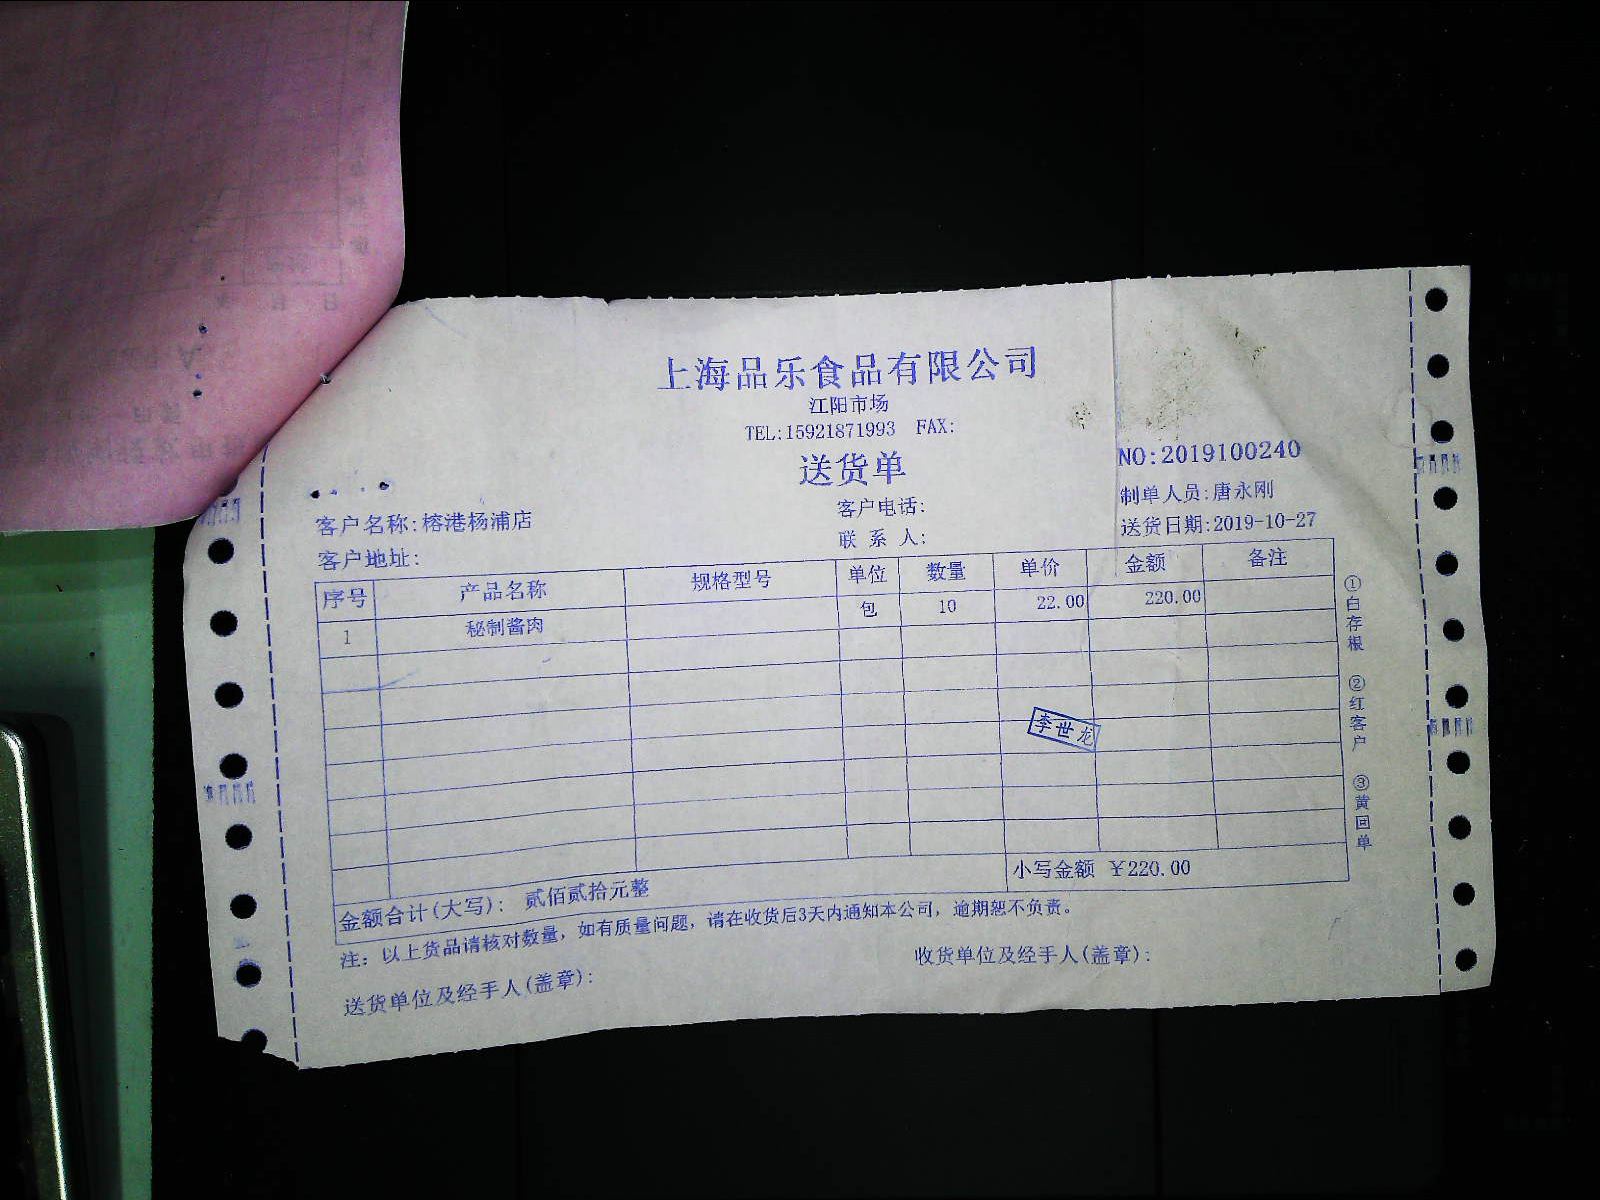 上海品乐食品有限公司
江阳市场
TEL:15921871993 FAX:
送货单
NO:2019100240
客户电话:
制单人员:唐永刚
客户名称:榕港杨浦店
联系人:
送货日期:2019-10-27
客户地址:
序号 产品名称 规格型号 单位 数量 单价 金额 备注
1 秘制酱肉 包 10 22.00 220.00
李世龙
①白存根 ②红客户 ③黄回单
金额合计(大写): 贰佰贰拾元整 小写金额 ￥220.00
注: 以上货品请核对数量，如有质量问题，请在收货后3天内通知本公司，逾期恕不负责。
送货单位及经手人(盖章): 收货单位及经手人(盖章):